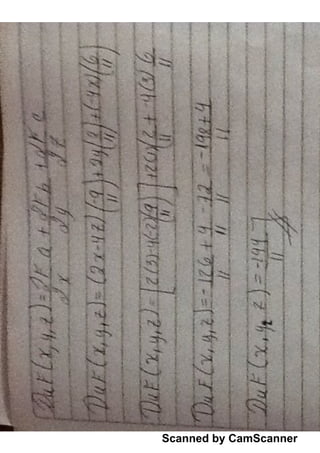 DuF(x,y,z)=∂F/∂x a + ∂F/∂y b + ∂F/∂z c
DuF(x,y,z)=(2x-4z)(-9/11)+2y(2/11)+(-4x)(6/11)
DuF(x,y,z)=[2(3)-4(-2)(9/11)]+2(1)2/11+-4(3)6/11
DuF(x,y,z)=-126/11+4/11-72/11=-198+4/11
DuF(x,y,z)=-194/11
Scanned by CamScanner